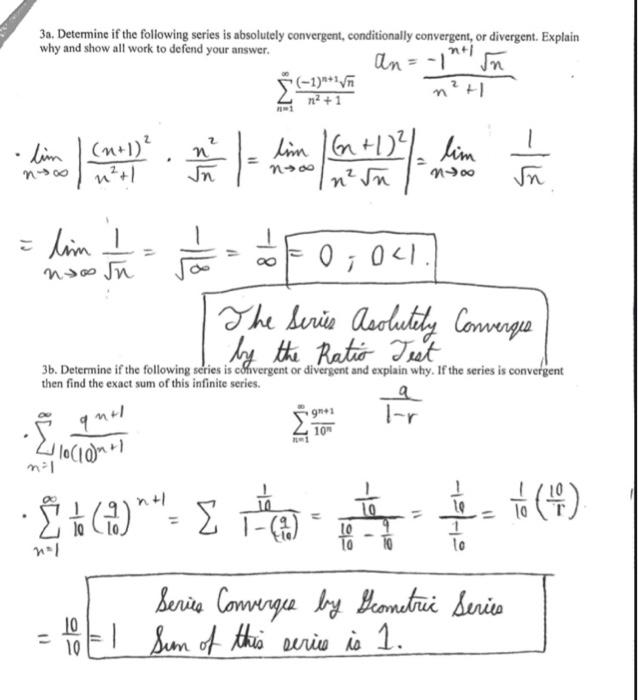 3a. Determine if the following series is absolutely convergent, conditionally convergent, or divergent. Explain
why and show all work to defend your answer.
∑_{n=1}^{∞} (-1)^{n+1}√n / (n² + 1)
an = -1^{n+1} √n / (n² + 1)
· lim_{n→∞} | (n+1)² / (n²+1) · n² / √n | = lim_{n→∞} | (n+1)² / (n² √n) | = lim_{n→∞} 1/√n
= lim_{n→∞} 1/√n = 1/√∞ = 1/∞ = 0 ; 0<1.
The Series Asolutely Converges
by the Ratio Test
3b. Determine if the following series is convergent or divergent and explain why. If the series is convergent
then find the exact sum of this infinite series.
∑_{n=1}^{∞} 9^{n+1} / 10^n
a / (1-r)
· ∑_{n=1}^{∞} 9^{n+1} / 10(10)^{n+1}
· ∑_{n=1}^{∞} 1/10 (9/10)^{n+1} = ∑ (1/10) / (1-(9/10)) = (1/10) / (10/10 - 9/10) = (1/10) / (1/10) = 1/10 (10/1)
= 10/10 = 1
Series Converges by Geometric Series
Sum of this series is 1.